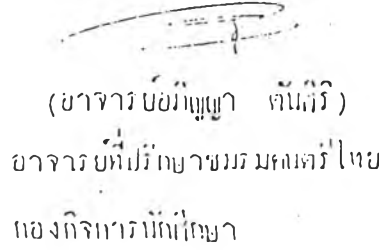 (อาจารย์อภิญญา ตันศิริ)
อาจารย์ที่ปรึกษาชมรมดนตรีไทย
กองกิจการนักศึกษา